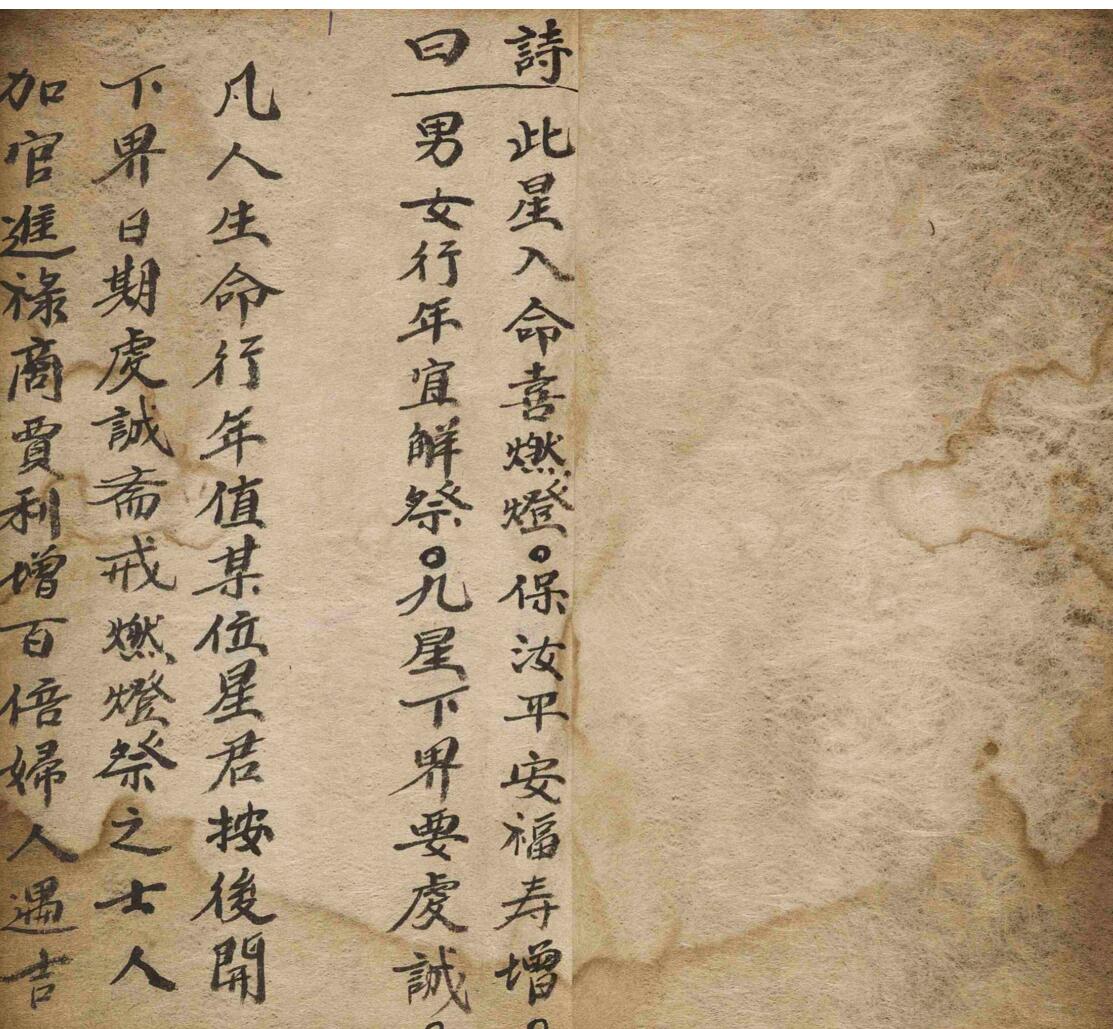 詩曰
此星入命喜燃燈。保汝平安福寿增。
男女行年宜解祭。九星下界要虔誠。
凡人生命行年值某位星君按後開
下界日期虔誠斎戒燃燈祭之士人
加官進祿商賈利增百倍婦人遇吉